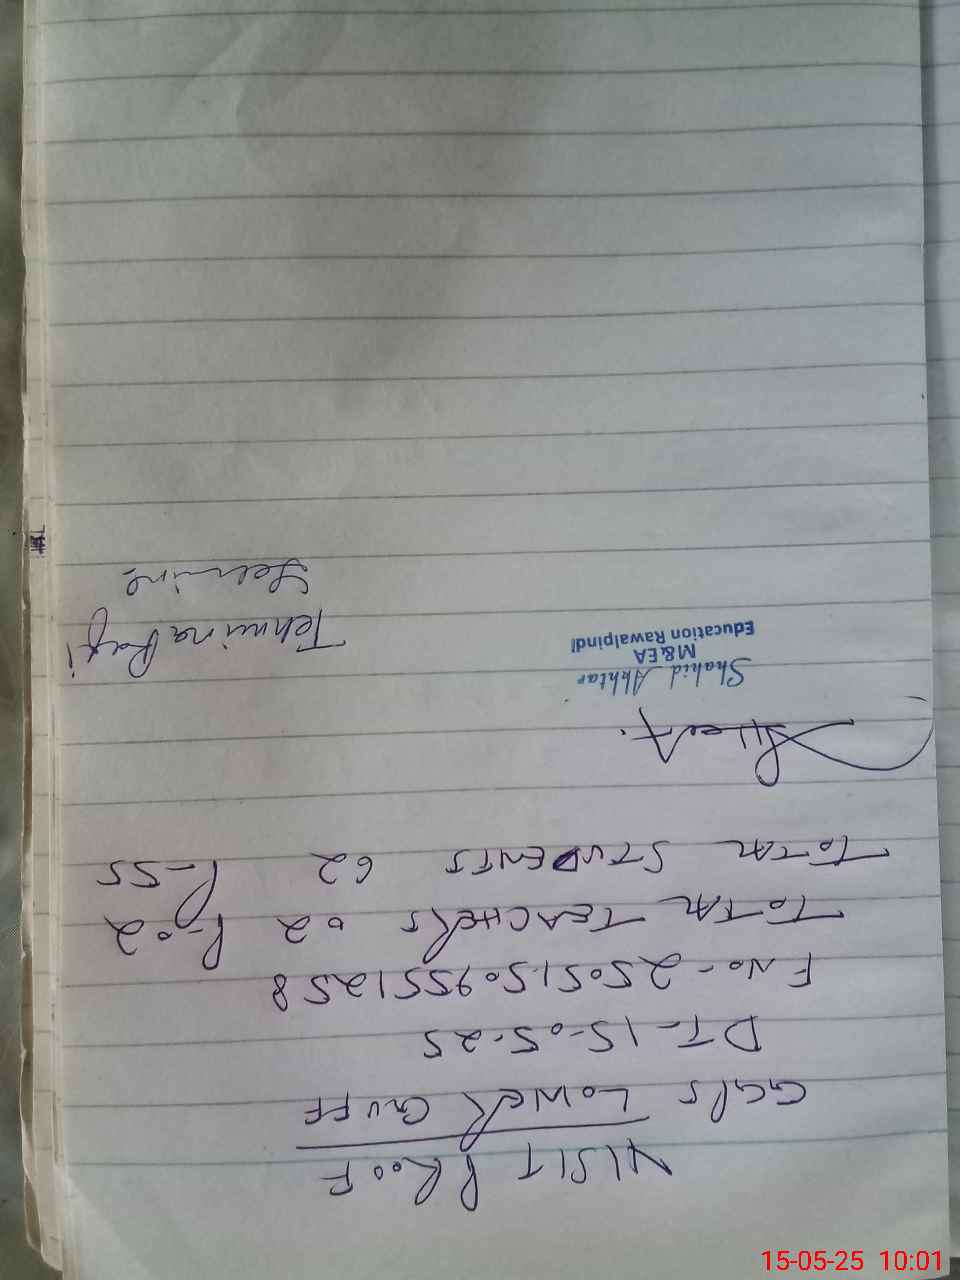 VISIT PROOF
GGPS LOWER GUFF
DT-15-05-25
F No-25051509551258
TOTAL TEACHERS 02 P-02
TOTAL STUDENTS 62 P-55
Shahid Akhtar
M&EA
Education Rawalpindi
Tehmina
15-05-25 10:01